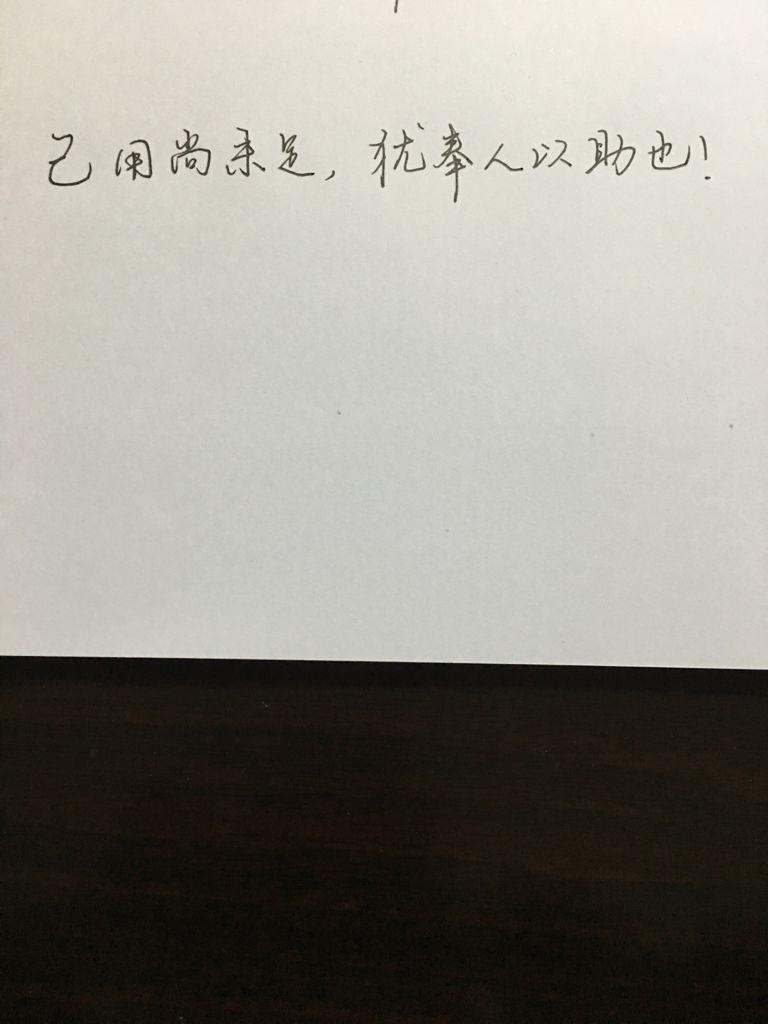 己用尚未足，犹奉人以助也！